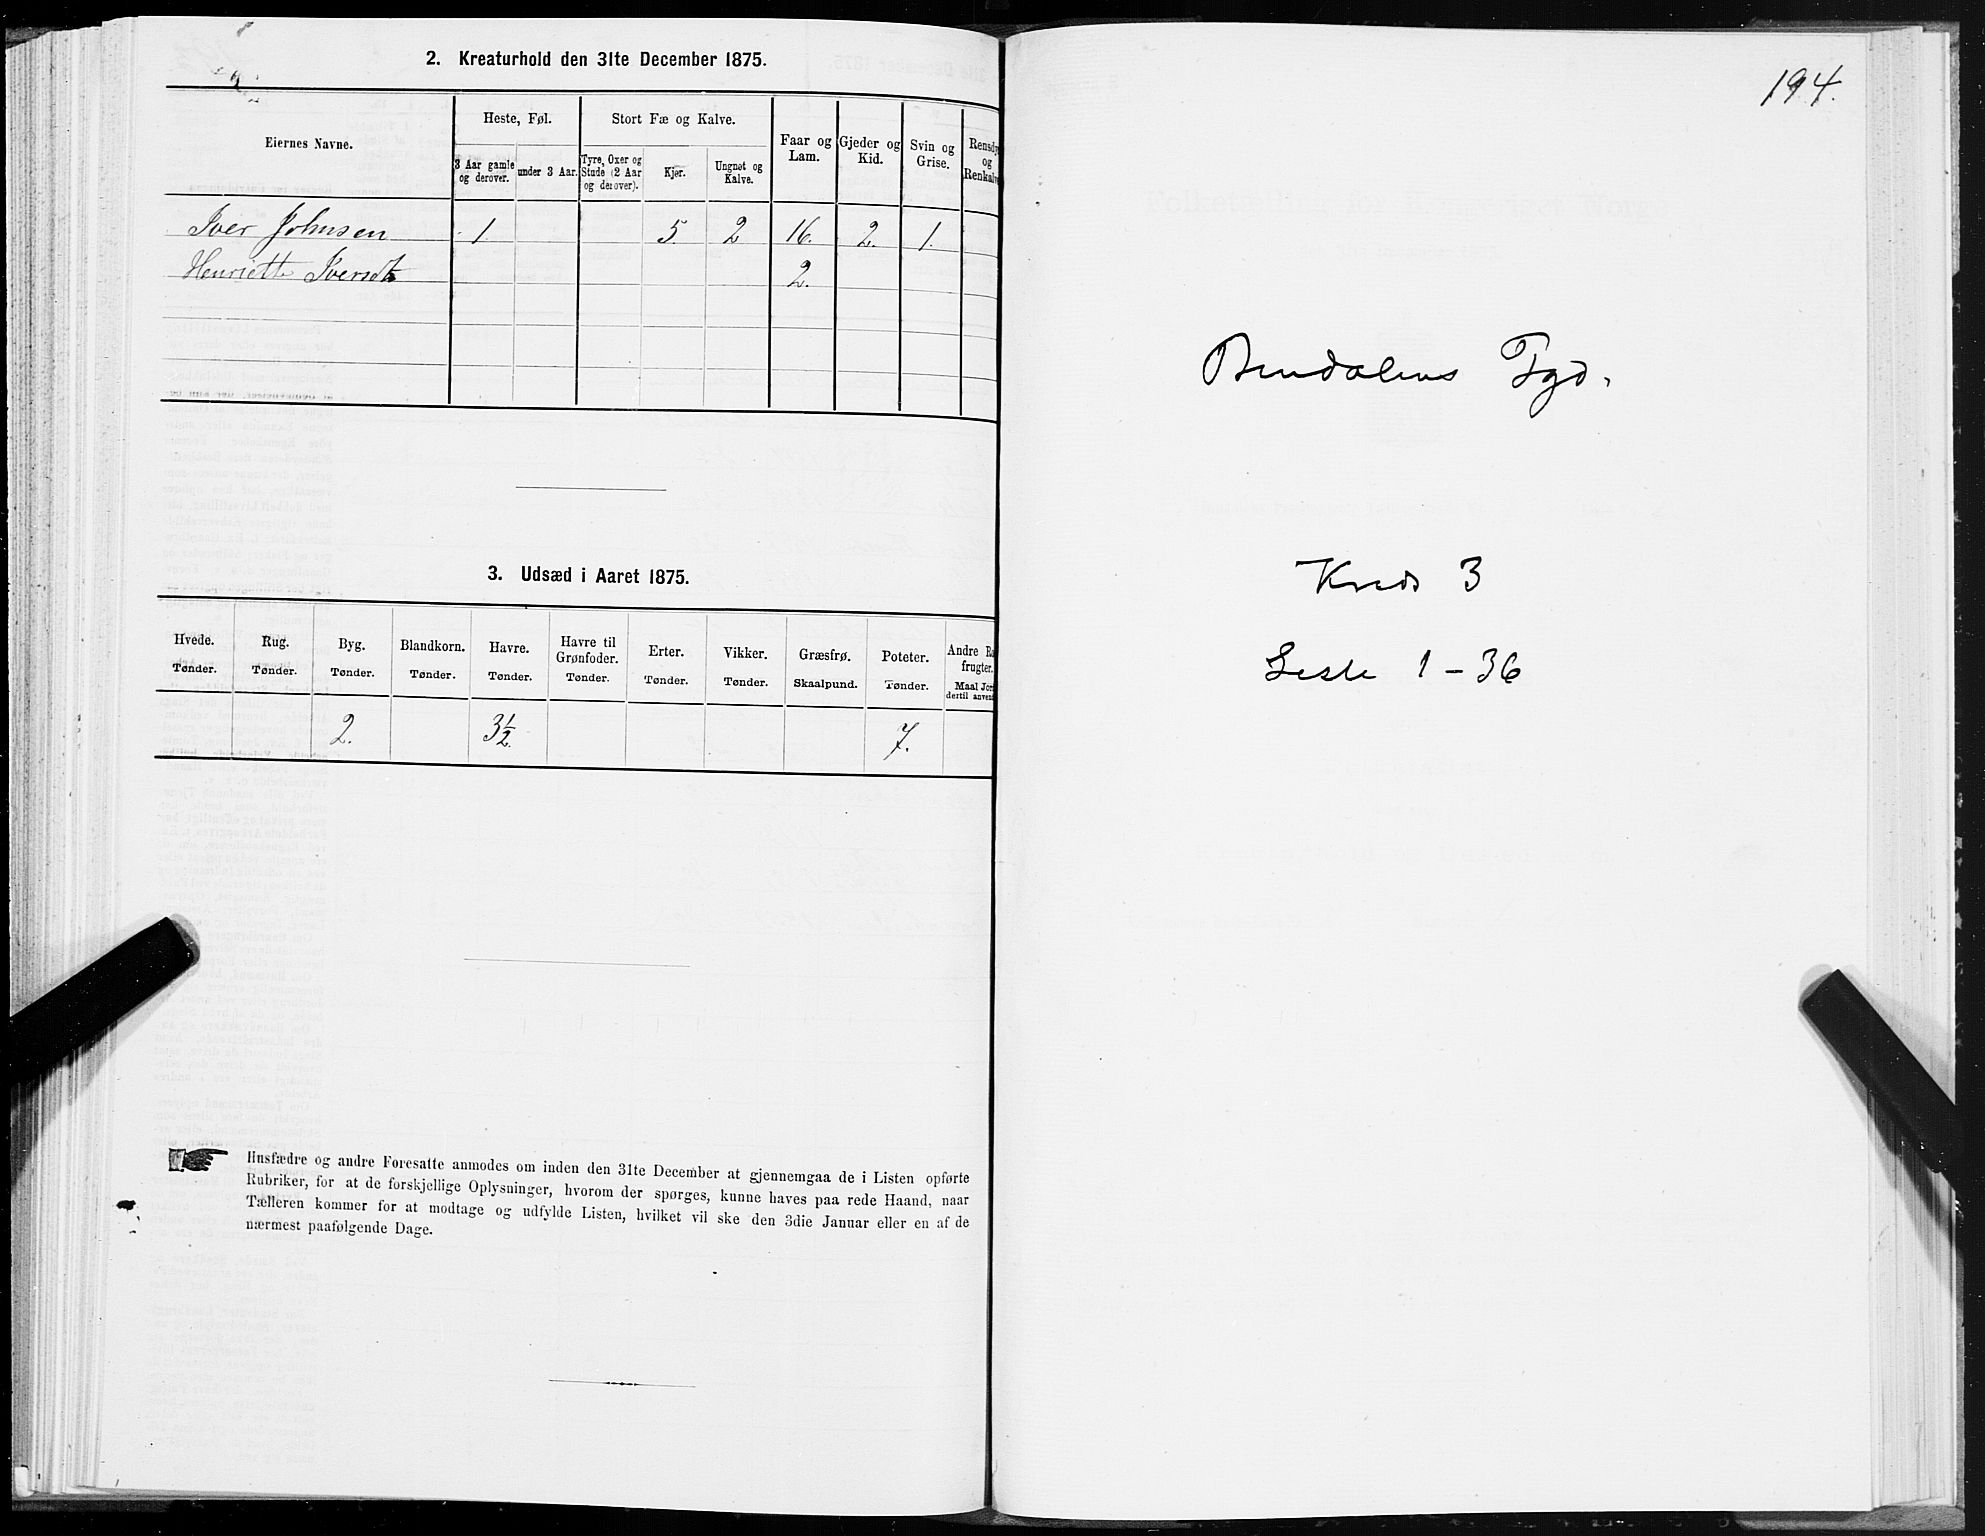 2. Kreaturhold den 31te December 1875.
Eiernes Navne.
Heste, Føl.
Stort Fæ og Kalve.
Faar og Lam.
Gjeder og Kid.
Svin og Grise.
Rensdy
og
Renkalve
3 Aar gamle og derover.
under 3 Aar.
Tyre, Oxer og Stude (2 Aar og derover).
Kjør.
Ungnøt og Kalve.
Iver Johnsen 1. 5. 2 16. 2. 1.
Henriette Iversdt 2.
3. Udsæd i Aaret 1875.
Hvede. Rug. Byg. Blandkorn. Havre. Havre til Grønfoder. Erter. Vikker. Græsfrø. Poteter. Andre Ro
frugter.
Tønder. Tønder. Tønder. Tønder. Tønder. Tønder. Tønder. Tønder. Skaalpund. Tønder. Maal Jor
dertil anvend
2. 3½. 7.
Husfædre og andre Foresatte anmodes om inden den 31te December at gjennemgaa de i Listen opførte
Rubriker, for at de forskjellige Oplysninger, hvorom der spørges, kunne haves paa rede Haand, naar
Tælleren kommer for at modtage og udfylde Listen, hvilket vil ske den 3die Januar eller en af de
nærmest paafølgende Dage.
194.
Bindalens Tgd.
Kreds 3
Liste 1 - 36